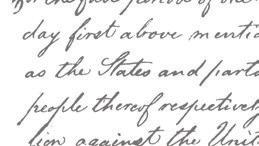 for the full period of one
day first above mentio
as the States and parts
people thereof respectively
lion against the Unit